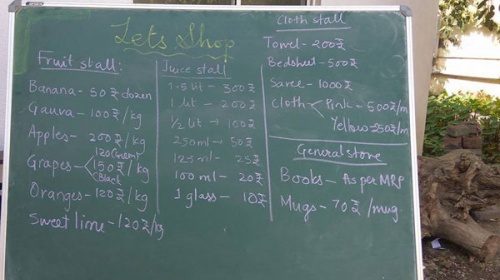 Lets Shop
Fruit stall:
Banana - 50 ₹ dozen
Gauva - 100₹/kg
Apples - 200₹/kg
120 (Green)
Grapes < 150₹/kg
(Black
Oranges - 120₹/kg
Sweet lime - 120₹/kg
Juice stall
1.5 lit - 300₹
1 lit - 200₹
1/2 lit - 100₹
250ml - 50₹
125 ml - 25₹
100 ml - 20₹
1 glass - 10₹
Cloth stall
Towel - 200₹
Bedsheet - 500₹
Saree - 1000₹
Cloth < Pink - 500₹/m
Yellow - 250₹/m
General store
Books - As per MRP
Mugs - 70₹/mug